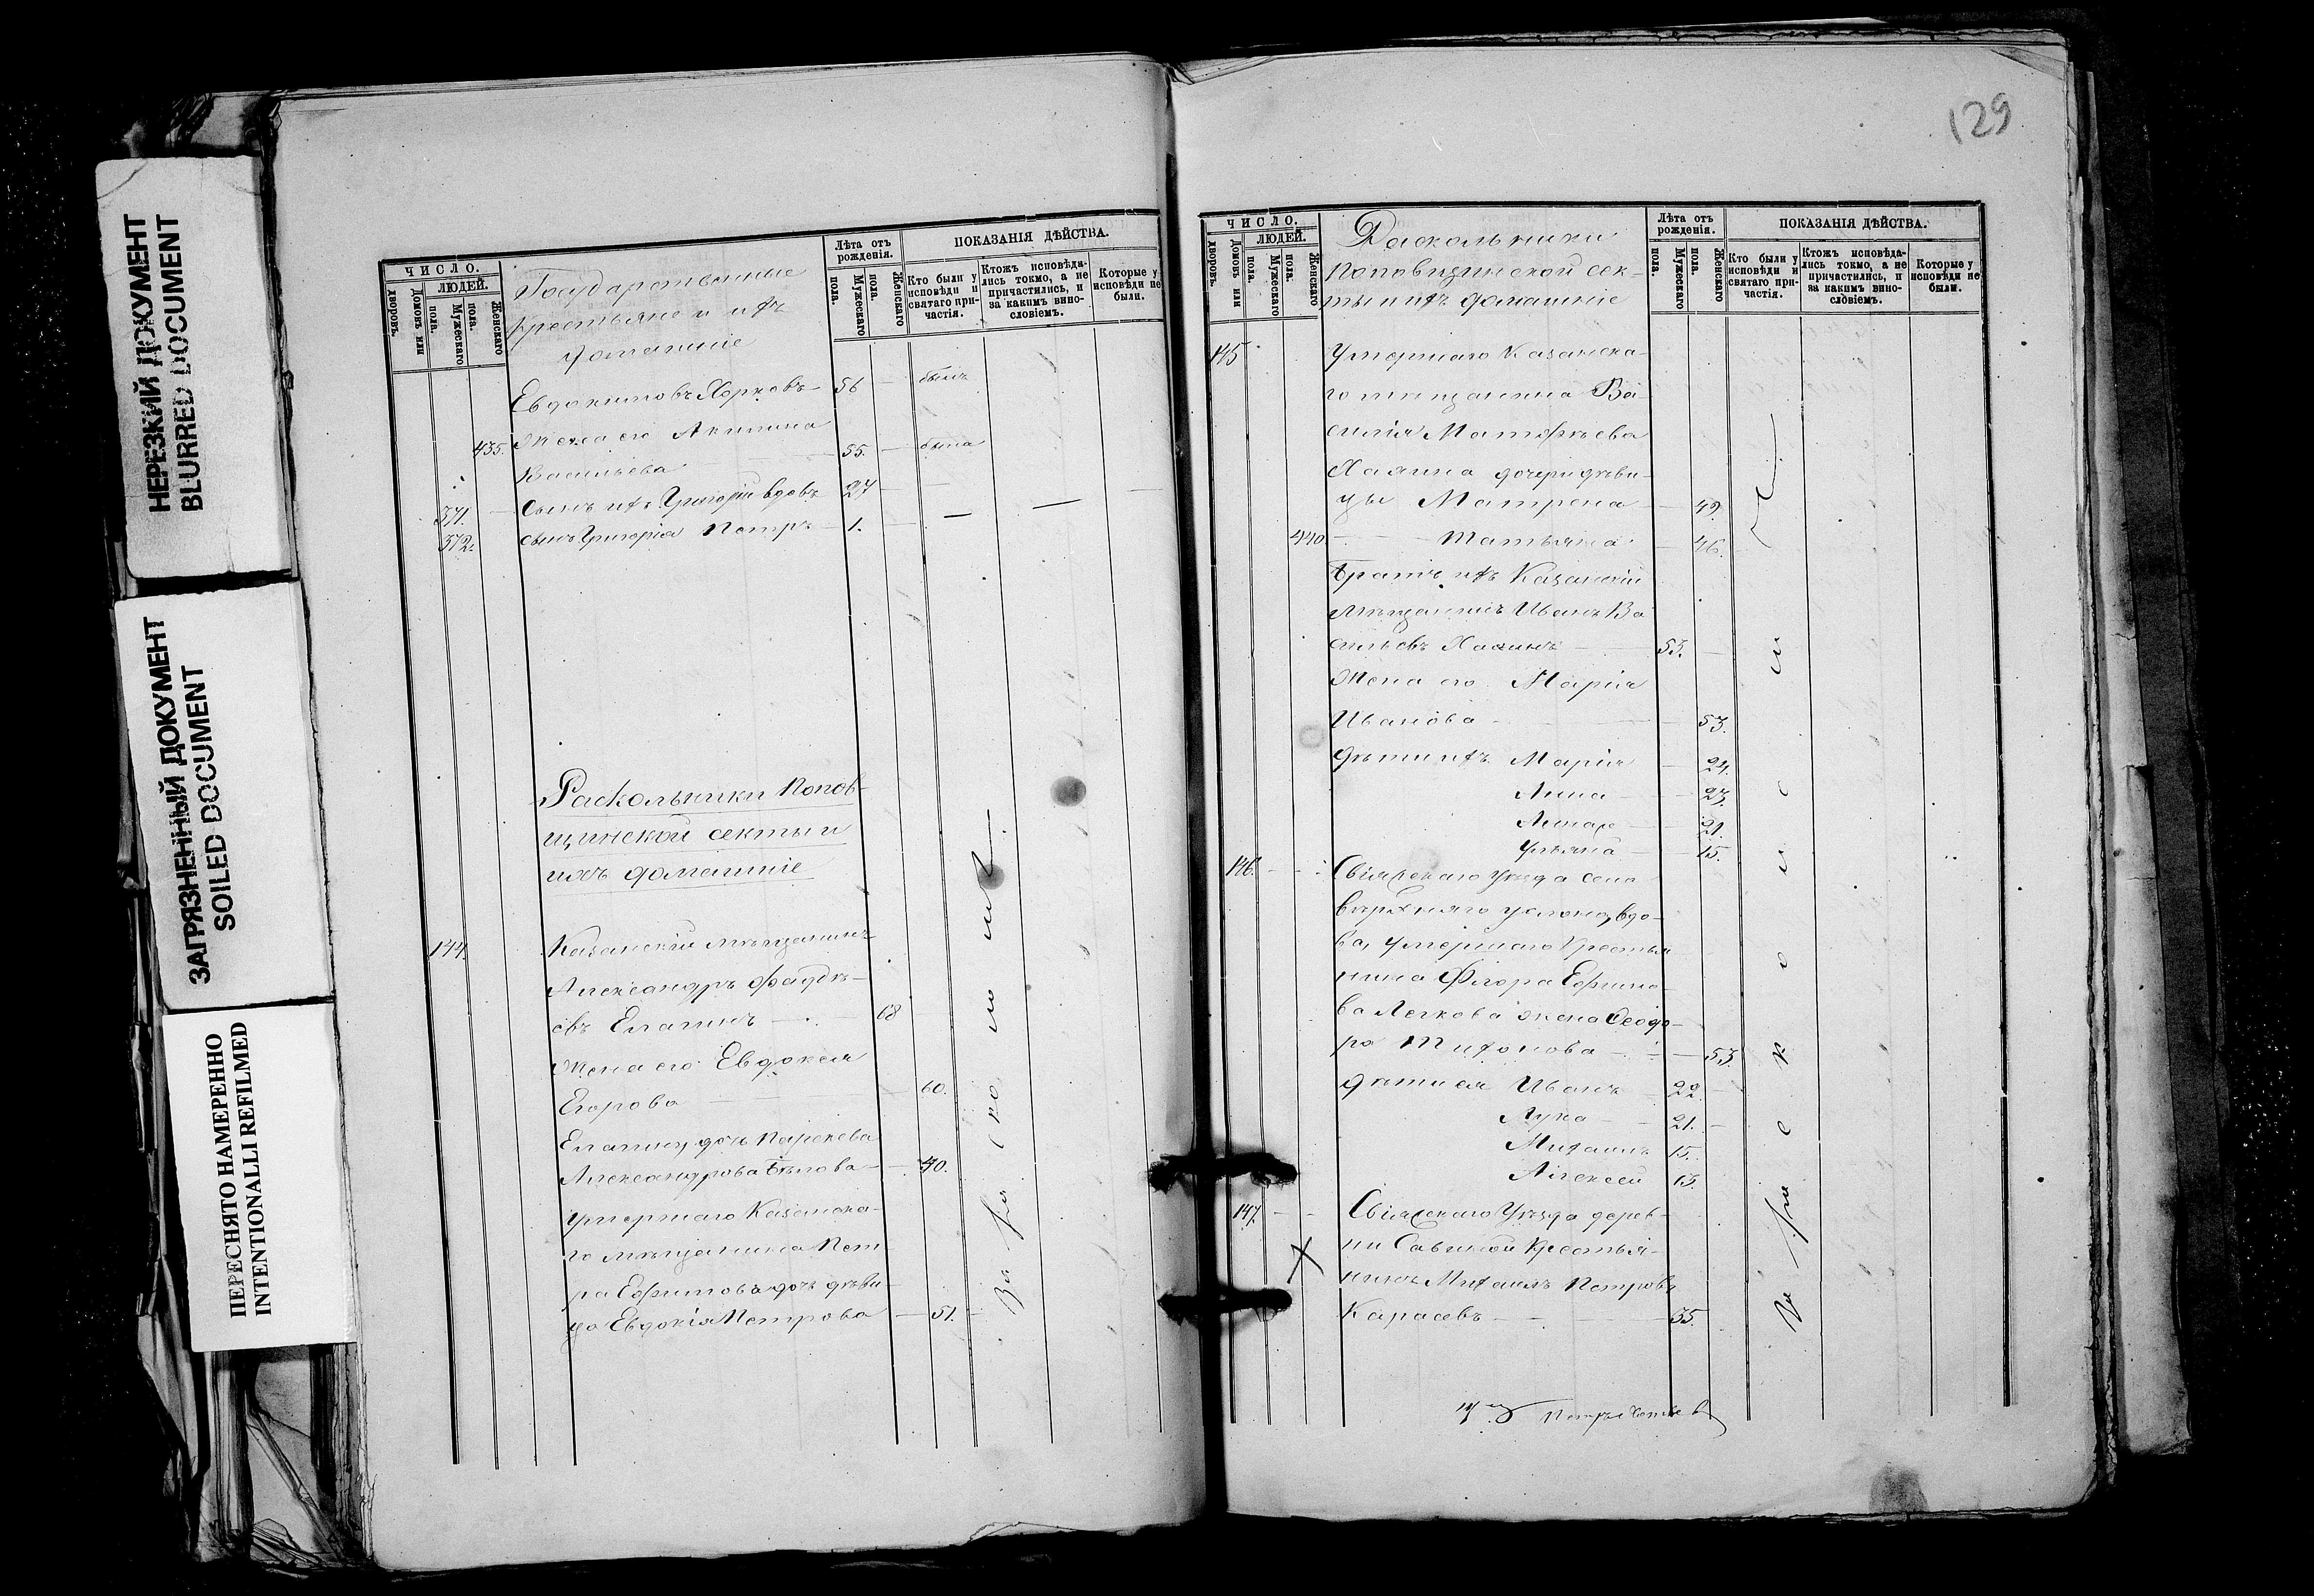 НЕРЕЗКИЙ ДОКУМЕНТ
BLURRED DOCUMENT
ЗАГРЯЗНЕННЫЙ ДОКУМЕНТ
SOILED DOCUMENT
ПЕРЕСНЯТО НАМЕРЕННО
INTENTIONALLI REFILMED
ЧИСЛО.
ЛЮДЕЙ.
Домовъ или дворовъ.
Мужескаго пола.
Женскаго пола.
Государственные
крестьяне и ихъ
домашніе
Лѣта отъ рожденія.
Мужескаго пола.
Женскаго пола.
ПОКАЗАНІЯ ДѢЙСТВА.
Кто были у исповѣди и святаго причастія.
Ктожъ исповѣдались токмо, а не причастились, и за какимъ винословіемъ.
Которые у исповѣди не были.
Евдокимовъ 56 былъ
435. Жена его Акилина
Васильева 55. была
371. Сынъ ихъ Григорій вдовъ 27
372. сынъ Григорія Петръ 1.
Раскольники Попов-
щинской секты и
ихъ домашніе
144. Казанскій мѣщанинъ
Александръ Фадѣе-
евъ Елагинъ 68
Жена его Евдокея
Егорова 60.
Елагину дочь
Александрова Бѣлова 40.
Умершаго Казанска-
го мѣщанина Пет-
ра Ефимова дочь дѣви-
ца Евдокія Петрова 51.
129
ЧИСЛО.
ЛЮДЕЙ.
Домовъ или дворовъ.
Мужескаго пола.
Женскаго пола.
Раскольники
Поповщинской сек-
ты и ихъ домашніе
Лѣта отъ рожденія.
Мужескаго пола.
Женскаго пола.
ПОКАЗАНІЯ ДѢЙСТВА.
Кто были у исповѣди и святаго причастія.
Ктожъ исповѣдались токмо, а не причастились, и за какимъ винословіемъ.
Которые у исповѣди не были.
145 Умершаго Казанска-
го мѣщанина Ва-
силія Матфѣева
дочери дѣви-
цы Матрена 49.
440 Татьяна 46.
Братъ ихъ Казанскій
Мѣщанинъ Иванъ Ва
сильевъ 53.
Жена его Марія
Иванова 53.
Дѣти ихъ Марія 24.
Анна 23.
21.
Ульяна 15.
146. Свіяжскаго Уѣзда села
Верхняго Услона, вдо-
ва, умершаго Крестья
нина Флора Ефимо-
ва Легкова жена Ѳеодо-
ра Тихонова 53.
Дѣти ея Иванъ 22.
Лука 21.
Михаилъ 15.
Алексей 13.
147. Свіяжскаго Уѣзда дерев-
ни Савиной Крестья-
нинъ Михаилъ Петровъ
Карасевъ 35.
За раскольни